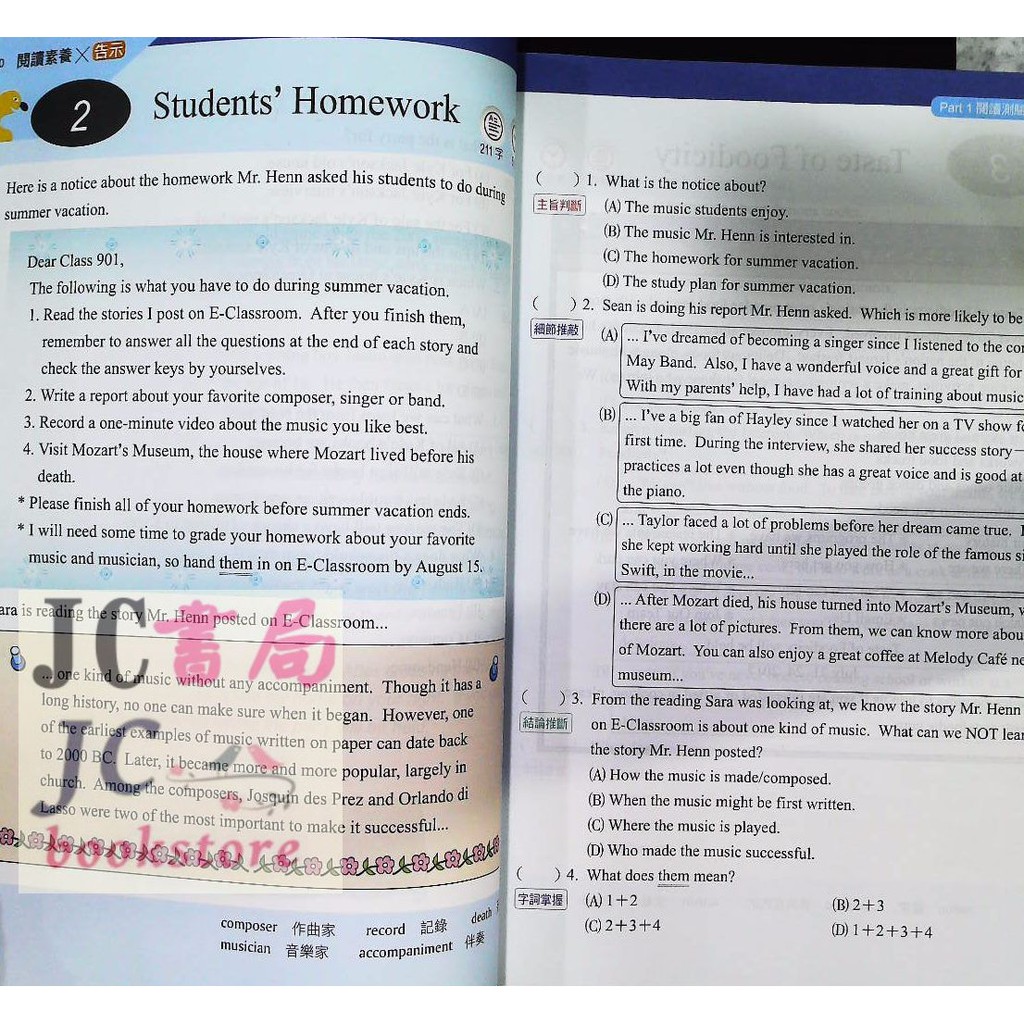 閱讀素養×告示
2
Students' Homework
211字
Here is a notice about the homework Mr. Henn asked his students to do during
summer vacation.
Dear Class 901,
The following is what you have to do during summer vacation.
1. Read the stories I post on E-Classroom. After you finish them,
remember to answer all the questions at the end of each story and
check the answer keys by yourselves.
2. Write a report about your favorite composer, singer or band.
3. Record a one-minute video about the music you like best.
4. Visit Mozart's Museum, the house where Mozart lived before his
death.
* Please finish all of your homework before summer vacation ends.
* I will need some time to grade your homework about your favorite
music and musician, so hand them in on E-Classroom by August 15.
ara is reading the story Mr. Henn posted on E-Classroom...
... one kind of music without any accompaniment. Though it has a
long history, no one can make sure when it began. However, one
of the earliest examples of music written on paper can date back
to 2000 BC. Later, it became more and more popular, largely in
church. Among the composers, Josquin des Prez and Orlando di
Lasso were two of the most important to make it successful...
JC書局
JC
bookstore
composer 作曲家 record 記錄 death
musician 音樂家 accompaniment 伴奏
Part 1 閱讀測驗
( ) 1. What is the notice about?
主旨判斷 (A) The music students enjoy.
(B) The music Mr. Henn is interested in.
(C) The homework for summer vacation.
(D) The study plan for summer vacation.
( ) 2. Sean is doing his report Mr. Henn asked. Which is more likely to be
細節推敲 (A) ... I've dreamed of becoming a singer since I listened to the con
May Band. Also, I have a wonderful voice and a great gift for
With my parents' help, I have had a lot of training about music
(B) ... I've a big fan of Hayley since I watched her on a TV show fo
first time. During the interview, she shared her success story—
practices a lot even though she has a great voice and is good at
the piano.
(C) ... Taylor faced a lot of problems before her dream came true.
she kept working hard until she played the role of the famous si
Swift, in the movie...
(D) ... After Mozart died, his house turned into Mozart's Museum, w
there are a lot of pictures. From them, we can know more abou
of Mozart. You can also enjoy a great coffee at Melody Café ne
museum...
( ) 3. From the reading Sara was looking at, we know the story Mr. Henn
結論推斷 on E-Classroom is about one kind of music. What can we NOT lear
the story Mr. Henn posted?
(A) How the music is made/composed.
(B) When the music might be first written.
(C) Where the music is played.
(D) Who made the music successful.
( ) 4. What does them mean?
字詞掌握 (A) 1+2 (B) 2+3
(C) 2+3+4 (D) 1+2+3+4